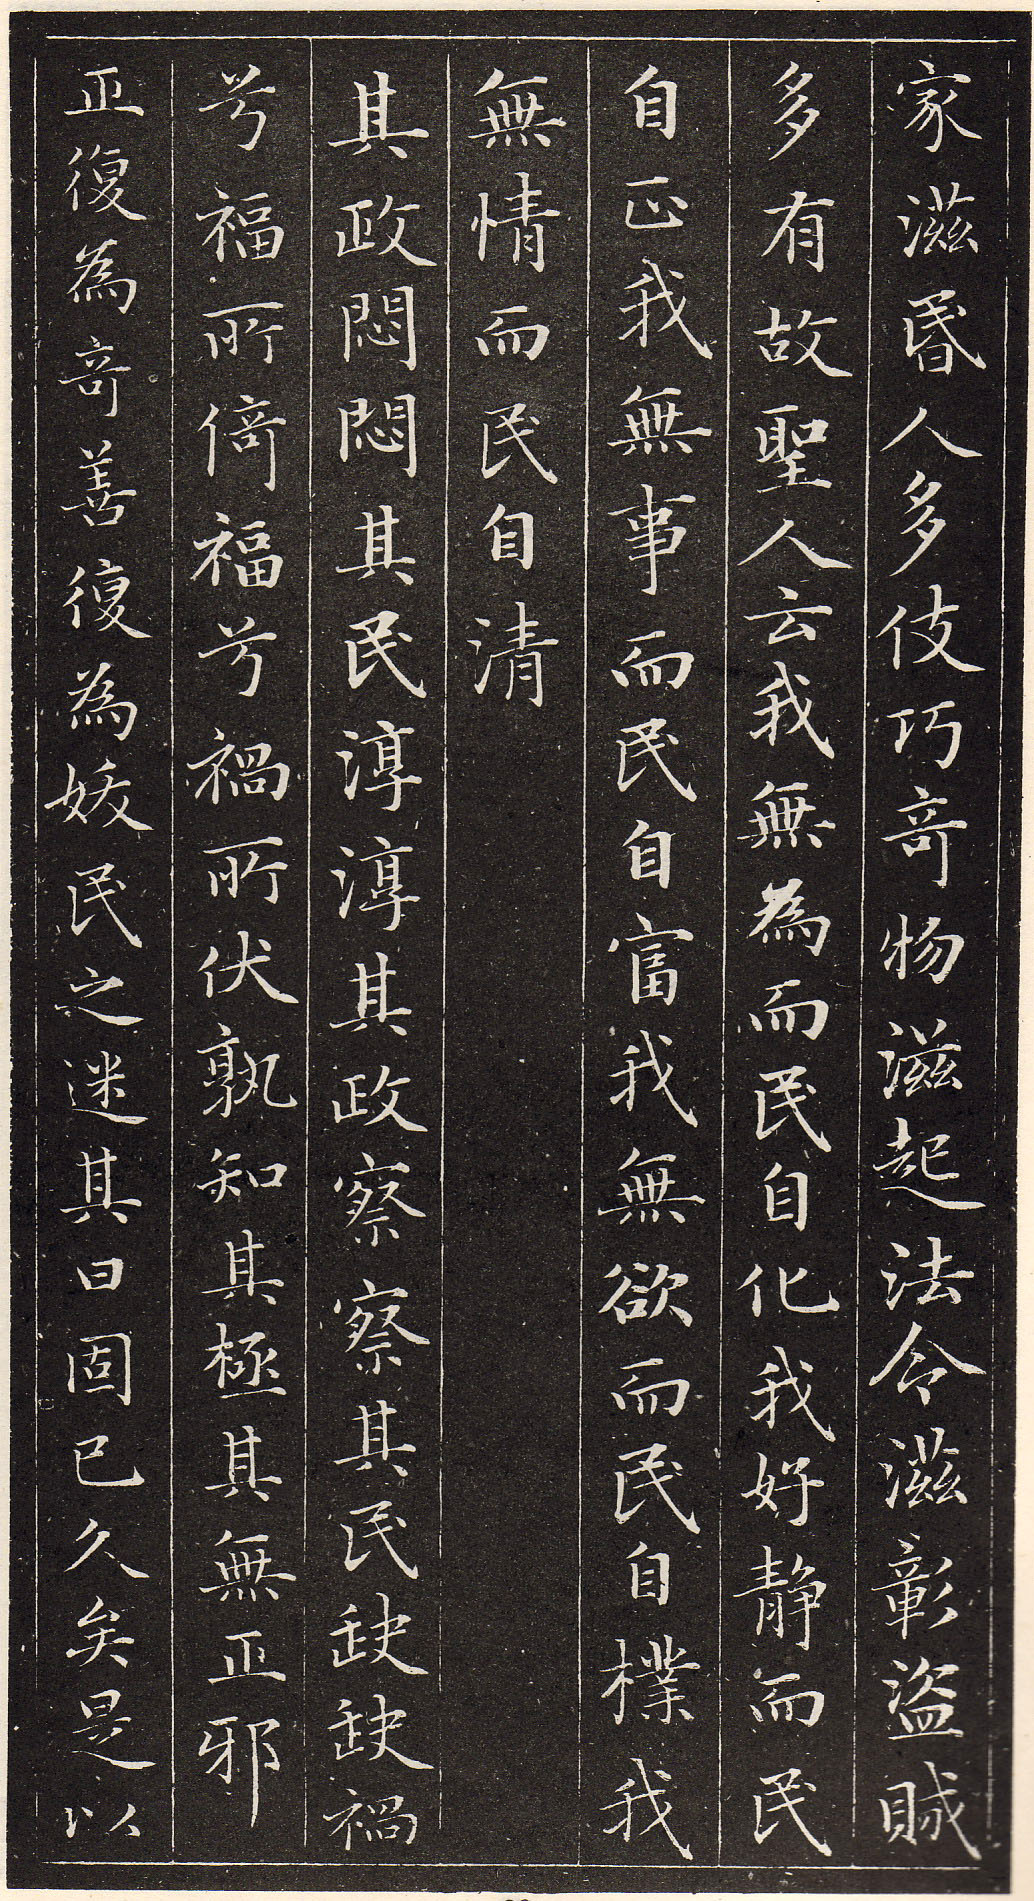 家滋昬人多伎巧竒物滋起法令滋彰盜賊
多有故聖人云我無為而民自化我好静而民
自正我無事而民自富我無欲而民自樸我
無情而民自清
其政悶悶其民淳淳其政察察其民缺缺禍
兮福所倚福兮禍所伏孰知其極其無正邪
正復為竒善復為妖民之迷其日固已久矣是以